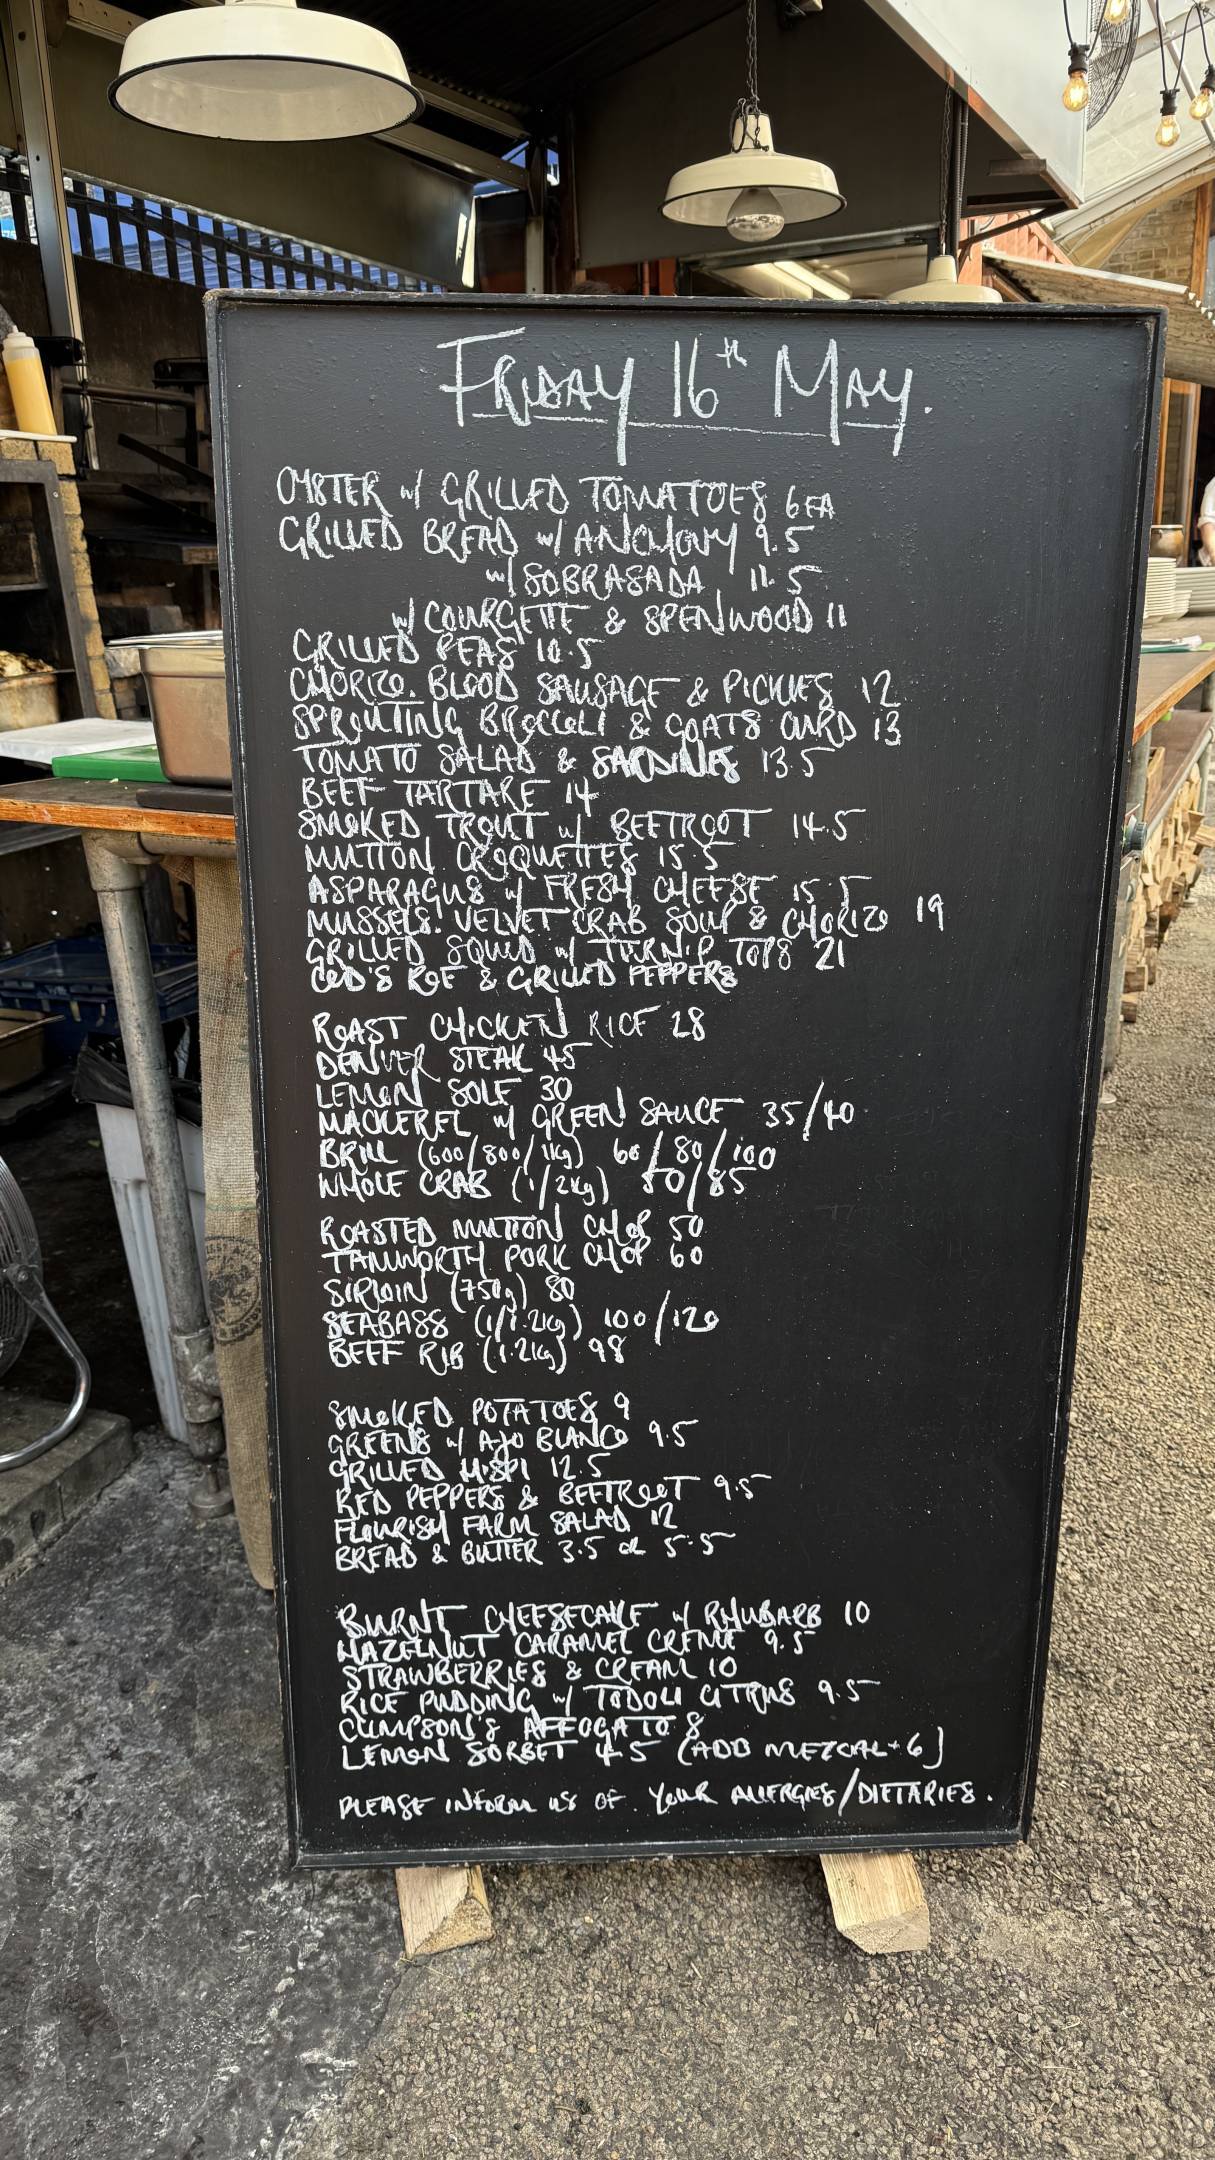 FRIDAY 16th MAY.
OYSTER w/ GRILLED TOMATOES 6EA
GRILLED BREAD w/ ANCHOVY 9.5
w/ SOBRASADA 11.5
w/ COURGETTE & SPENWOOD 11
GRILLED PEAS 10.5
CHORIZO. BLOOD SAUSAGE & PICKLES 12
SPROUTING BROCCOLI & GOATS CURD 13
TOMATO SALAD & SARDINES 13.5
BEEF TARTARE 14
SMOKED TROUT w/ BEETROOT 14.5
MUTTON CROQUETTES 15.5
ASPARAGUS w/ FRESH CHEESE 15.5
MUSSELS. VELVET CRAB SOUP & CHORIZO 19
GRILLED SQUID w/ TURNIP TOPS 21
COD'S ROE & GRILLED PEPPERS
ROAST CHICKEN RICE 28
DENVER STEAK 45
LEMON SOLE 30
MACKEREL w/ GREEN SAUCE 35/40
BRILL (600/800/1kg) 60/80/100
WHOLE CRAB (1/2kg) 50/85
ROASTED MUTTON CHOP 50
TAMWORTH PORK CHOP 60
SIRLOIN (750g) 80
SEABASS (1/1.2kg) 100/120
BEEF RIB (1.2kg) 98
SMOKED POTATOES 9
GREENS w/ AJO BLANCO 9.5
GRILLED HISPI 12.5
RED PEPPERS & BEETROOT 9.5
FLOURISH FARM SALAD 12
BREAD & BUTTER 3.5 or 5.5
BURNT CHEESECAKE w/ RHUBARB 10
HAZELNUT CARAMEL CREME 9.5
STRAWBERRIES & CREAM 10
RICE PUDDING w/ TODOLI CITRUS 9.5
CLIMPSON'S AFFOGATO 8
LEMON SORBET 4.5 (ADD MEZCAL + 6)
PLEASE INFORM US OF YOUR ALLERGIES/DIETARIES.